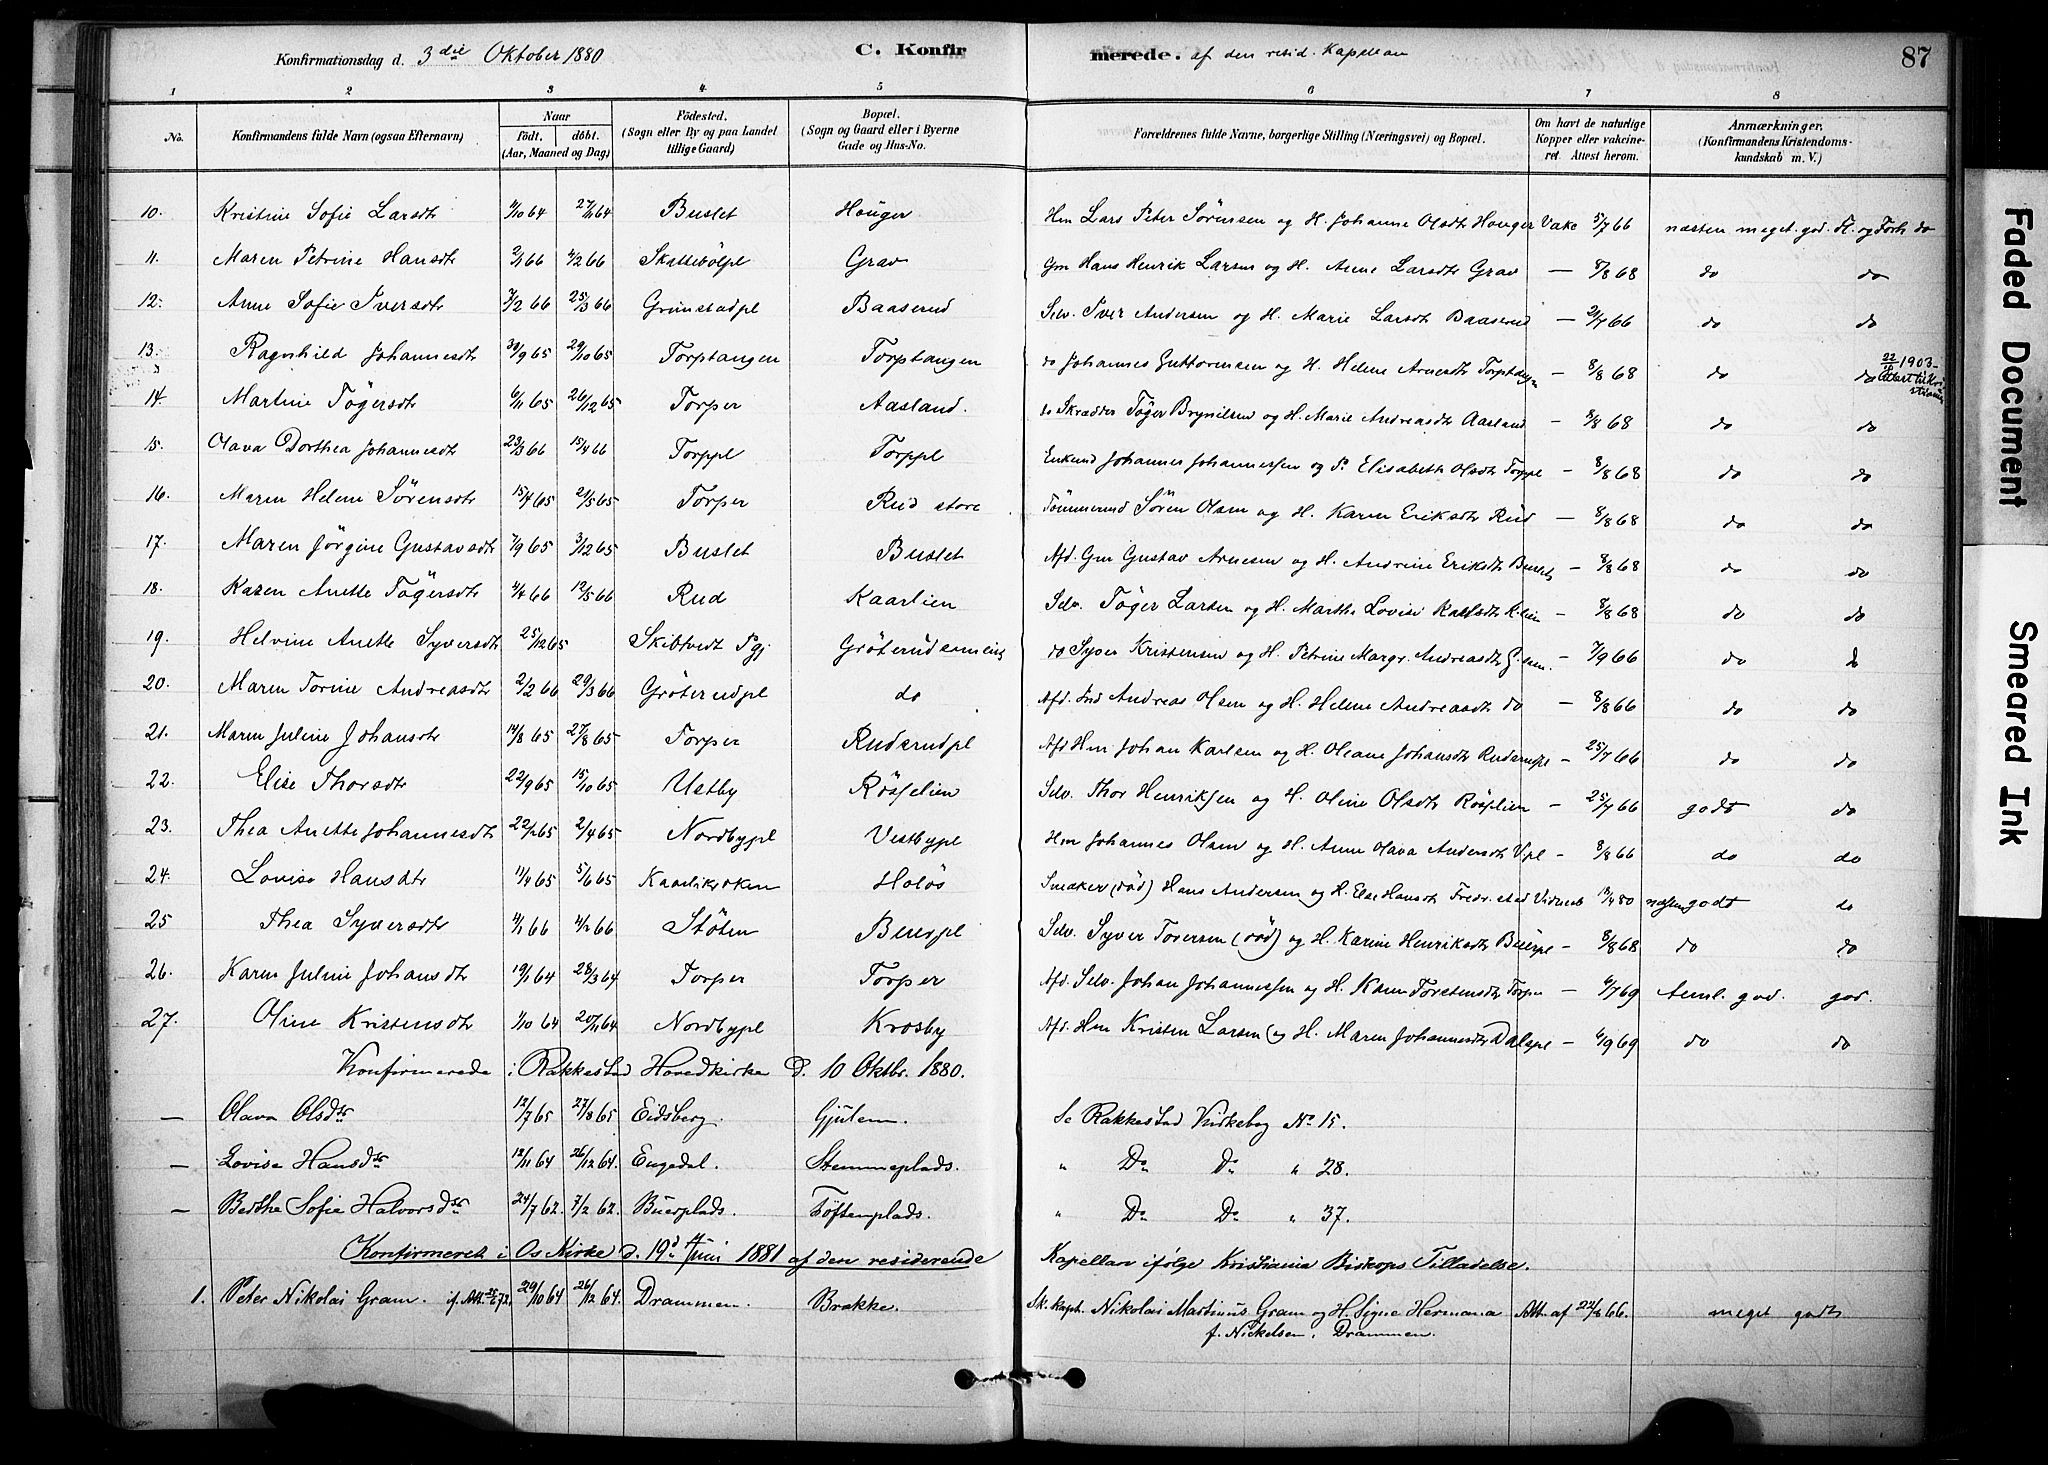 Konfirmationsdag d. 3die Oktober 1880 C. Konfirmerede. af den resid. Kapellan 87
1 2 3 4 5 6 7 8
No. Konfirmandens fulde Navn (ogsaa Efternavn) Naar født, døbt. (Aar, Maaned og Dag) Födested. (Sogn eller By og paa Landet tillige Gaard) Bopæl. (Sogn og Gaard eller i Byerne Gade og Hus-No. Forældrenes fulde Navne, borgerlige Stilling (Næringsvei) og Bopæl. Om havt de naturlige Kopper eller vakcineret. Attest herom. Anmærkninger. (Konfirmandens Kristendomskundskab m. V.)
10. Kristine Sofie Larsdtr 64 27/11 64 Buslet Houger Hm Lars Peter Sörensen og H. Johanne Olsdtr Houger Vakc 5/7 66 næsten meget god. Fl. og Forh do
11. Maren Petrine Hansdtr 2/1 66 4/2 66 Skattebölpl Grav Gm Hans Henrik Larsen og H. Anne Larsdtr Grav — 8/8 68 do do
12. Anne Sofie Iversdtr 7/2 66 25/3 66 Grimstadpl Baaserud Selv. Iver Andersen og H. Marie Larsdtr Baaserud — 2/7 66 do do
13. Ragnhild Johannesdtr 30/9 65 29/10 65 Torptangen Torptangen do Johannes Guttormsen og H. Helene Arnesdtr Torptangen 8/8 68 do do 22/10 1903
14. Martine Tögersdtr 6/11 65 26/12 65 Torper Aasland. do Skrædder Töger Brynilsen og H. Marie Andreasdtr Aasland — 8/8 68 do do
15. Olava Dorthea Johannesdtr 23/3 66 15/4 66 Torppl Torppl Enkemd Johannes Johannessen og Elisabeth Olsdtr Torppl — 8/8 68 do do
16. Maren Helene Sörensdtr 15/4 65 21/5 65 Torper Rud store Tömmermd Sören Olsen og H. Karen Eriksdtr Rud — 8/8 68 do do
17. Maren Jörgine Gustavsdtr 7/9 65 3/12 65 Buslet Buslet Afd. Gm Gustav Arnesen og H. Andrine Eriksdtr Buslet — 8/8 68 do do
18. Karen Anette Tögersdtr 4/4 66 12/5 66 Rud Kaarlien Selv. Töger Larsen og H. Marthe Lovise Karlsdtr K.lien — 8/8 68 do do
19. Helvine Anette Syversdtr 25/12 65 Skibtvedt Pgj Gröterudsameie do Syver Kristensen og H. Petrine Margr. Andreasdtr G.sam. — 7/9 66 do do
20. Maren Torine Andreasdtr 2/2 66 29/3 66 Gröterudpl do Afd. Ind Andreas Olsen og H. Helene Andreasdtr do — 8/8 66 do do
21. Maren Juline Johansdtr 14/8 65 27/8 65 Torper Rudsrudpl Afd Hm Johan Karlsen og H. Oleane Johansdtr Rudsrudpl — 25/7 66 do do
22. Elise Thorsdtr 22/9 65 15/10 65 Ustby Rösselien Selv. Thor Henriksen og H. Oline Olsdtr Rösslien — 25/7 66 godt do
23. Thea Anette Johannesdtr 22/2 65 2/4 65 Nordbypl Vestbypl Hm Johannes Olsen og H. Anne Olava Andersdtr V.pl — 8/8 66 do do
24. Lovise Hansdtr 11/4 65 5/6 65 Kaarlikroken Holös Smaker (död) Hans Andersen og H. Else Hansdtr Fredr.stad Vidnesb 13/4 80 næsten godt do
25 Thea Syversdtr 4/1 66 4/2 66 Stöten Buerpl Selv. Syver Torersen (död) og H. Karine Henriksdtr Buerpl — 8/8 68 do do
26. Karen Juline Johansdtr 19/1 64 28/3 64 Torper Torper Afd. Selv. Johan Johannessen og H. Karen Torstensdtr Torper — 6/7 69 Teml. god. god.
27. Oline Kristensdtr 1/10 64 20/11 64 Nordbypl Krosby Afd. Hm Kristen Larsen og H. Maren Johannesdtr Dalspl — 6/9 69 do do
Konfirmerede i Rakkestad Hovedkirke d. 10 Oktbr. 1880.
— Olava Olsdtr 12/7 65 27/8 65 Eidsberg. Gjulem. Se Rakkestad Kirkebog No 15.
— Lovise Hansdtr 12/11 64 26/12 64. Engedal. Stemmeplads. " Do Do " 28.
— Berthe Sofie Halvorsdtr 24/7 62. 7/2 62. Buerplads. Töftenplads. " Do Do " 37.
Konfirmeret i Os Kirke d. 19d Juni 1881 af den residerende Kapellan ifølge Kristiania Biskops Tilladelse.
1. Peter Nikolai Gram. 29/10 64 26/12 64. Drammen. Brakke. Sk.kapt. Nikolai Martinus Gram og H. Signe Hermana Att. af 22/8 66. meget godt
f. Nickelsen. Drammen.
Faded Document
Smeared Ink